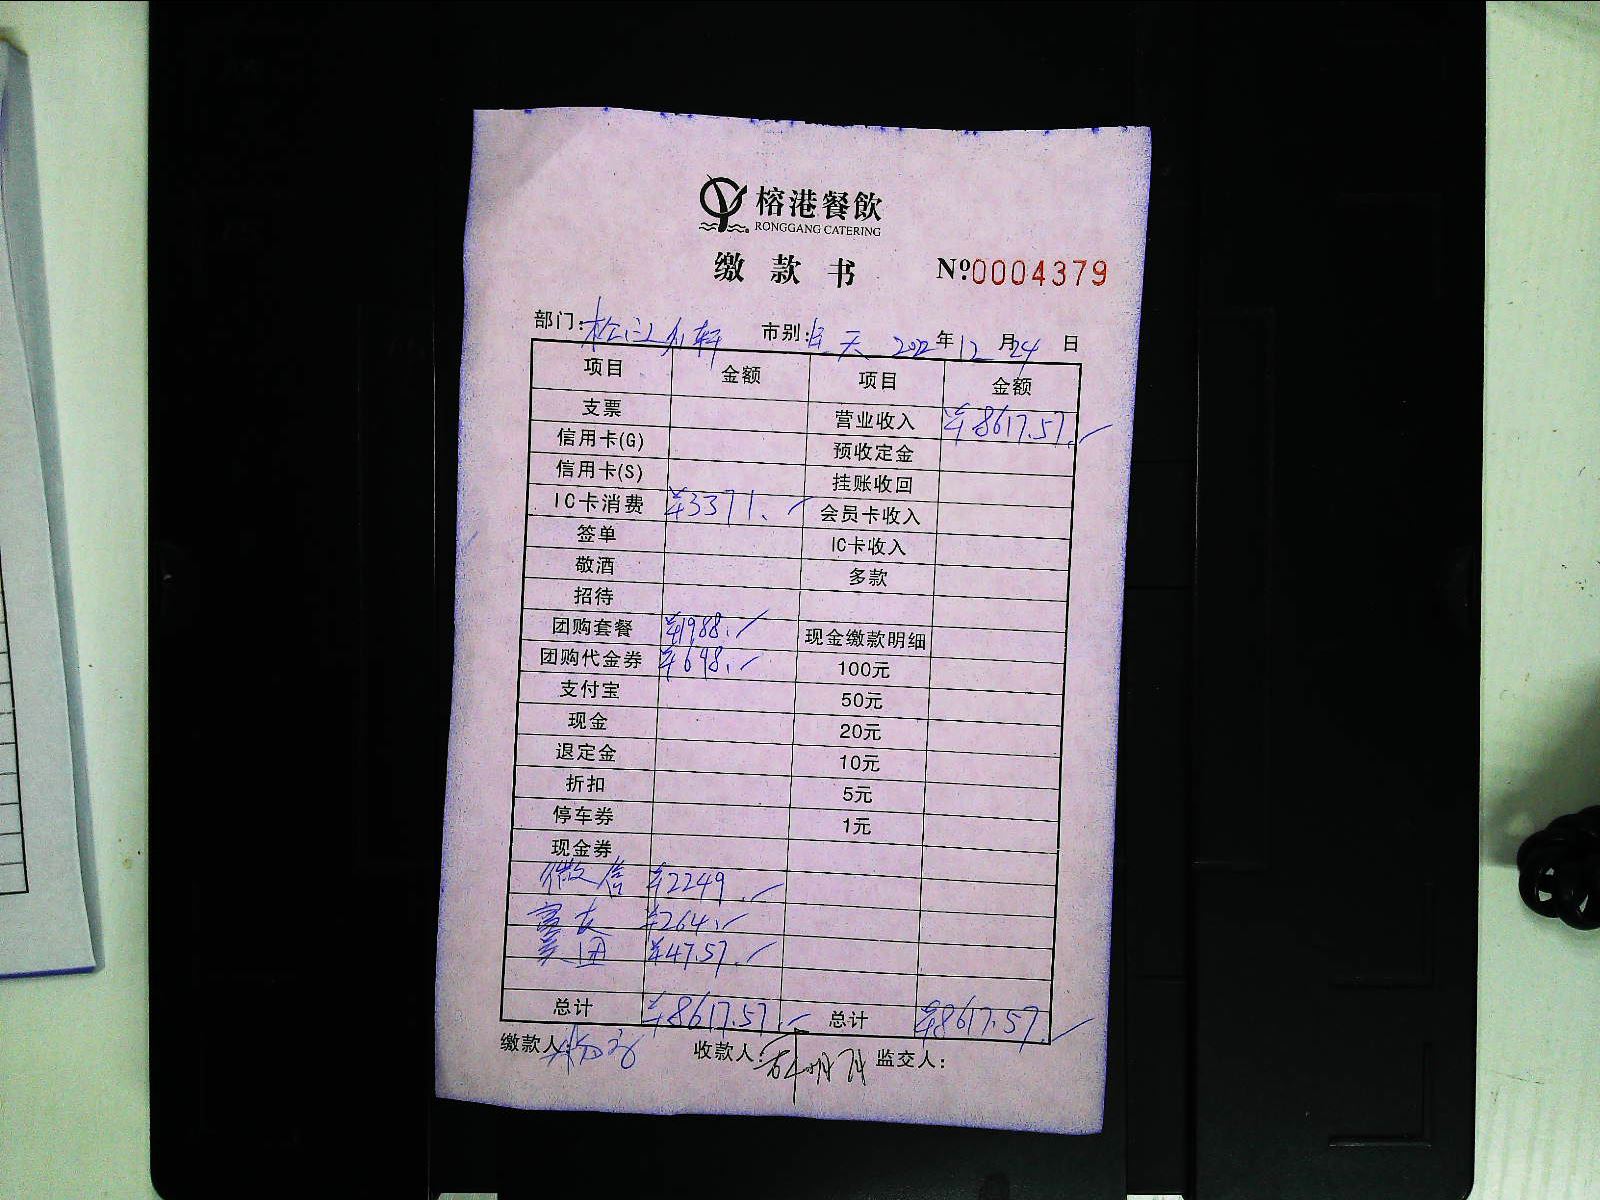 榕港餐飲
RONGGANG CATERING
缴款书 Nº0004379
部门: 市别: 2022年12月24日
项目 金额 项目 金额
支票 营业收入 ¥8617.57
信用卡(G) 预收定金
信用卡(S) 挂账收回
IC卡消费 ¥3371. 会员卡收入
签单 IC卡收入
敬酒 多款
招待
团购套餐 ¥1988. 现金缴款明细
团购代金券 ¥698. 100元
支付宝 50元
现金 20元
退定金 10元
折扣 5元
停车券 1元
现金券
微信 ¥2249.
富友 ¥264.
美团 ¥47.57.
总计 ¥8617.57. 总计 ¥8617.57.
缴款人: 收款人: 监交人: